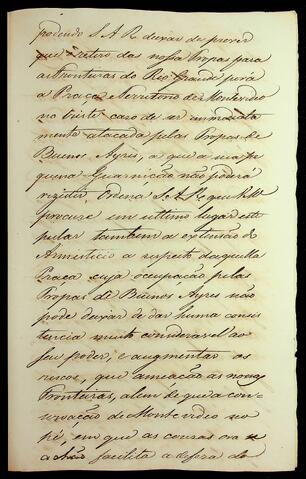 podendo S. A. R. deixar de prever
que o retiro das nossas Tropas para
as Fronteiras do Rio Grande porá
a Praça e Territorio de Montevideo
no triste caso de ser immediata
mente atacada pelas Tropas de
Buenos Ayres, a que a sua pe
quena Guarnição não poderá
rezistir, Ordena S. A. R. que V. M.
procure em ultimo lugar esti
pular tambem a extensão do
Armisticio a respeito daquella
Praça cuja occupação pelas
Tropas de Buenos Ayres não
pode deixar de dar huma consis
tencia muito consideravel ao
seu poder, e augmentar os
riscos, que ameação as nossas
Fronteiras, alem de que a con-
servação de Montevideo no
pé, em que as cousas ora se
achão facilita a defeza do